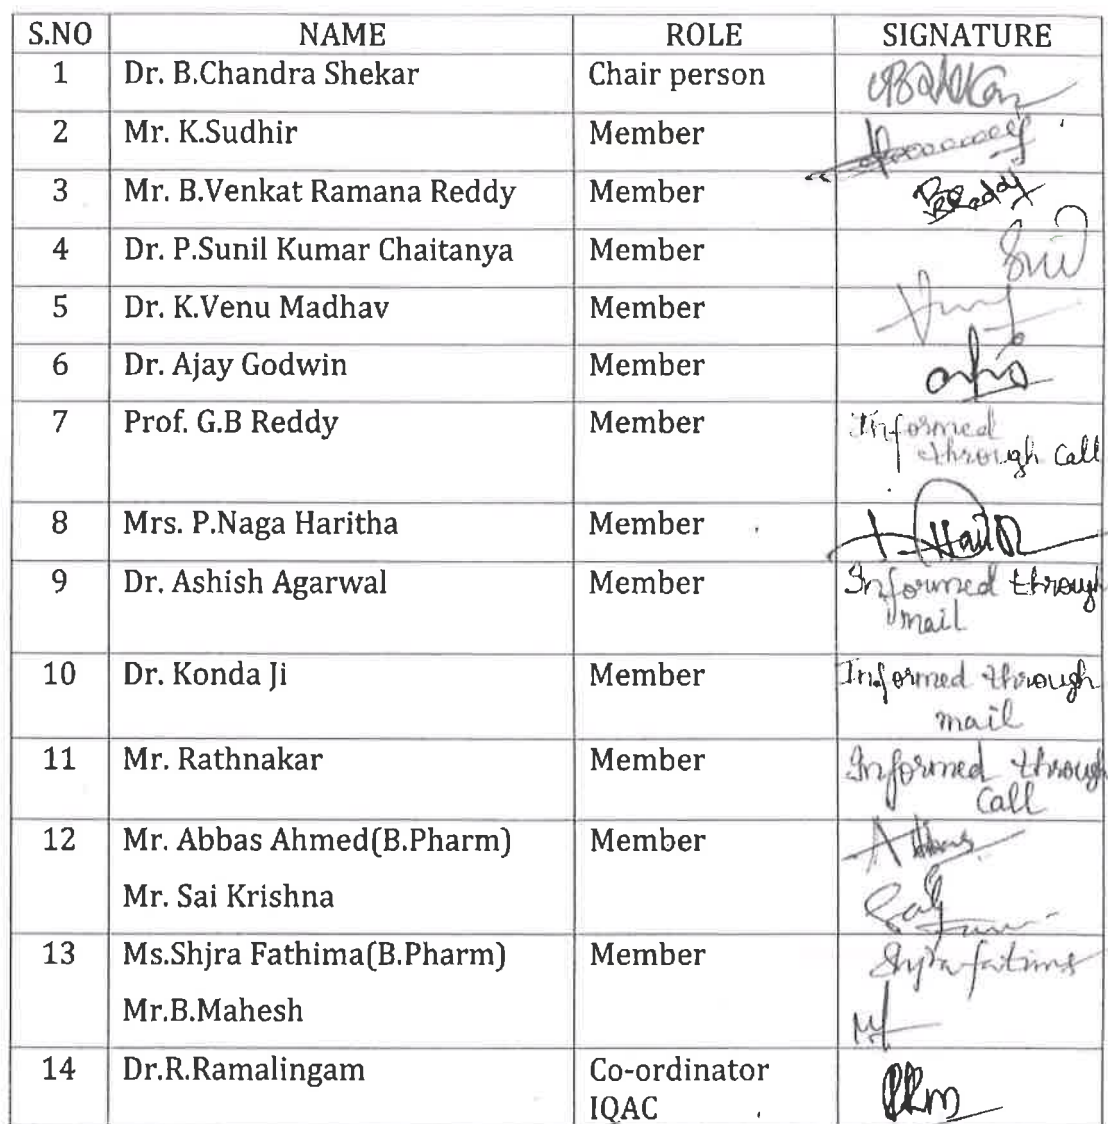 S.NO NAME ROLE SIGNATURE
1 Dr. B.Chandra Shekar Chair person
2 Mr. K.Sudhir Member
3 Mr. B.Venkat Ramana Reddy Member BReddy
4 Dr. P.Sunil Kumar Chaitanya Member
5 Dr. K.Venu Madhav Member
6 Dr. Ajay Godwin Member
7 Prof. G.B Reddy Member Informed
through call
8 Mrs. P.Naga Haritha Member
9 Dr. Ashish Agarwal Member Informed through
mail
10 Dr. Konda Ji Member Informed through
mail
11 Mr. Rathnakar Member Informed through
Call
12 Mr. Abbas Ahmed(B.Pharm) Member Abbas
Mr. Sai Krishna
13 Ms.Shjra Fathima(B.Pharm) Member Shjra fatima
Mr.B.Mahesh
14 Dr.R.Ramalingam Co-ordinator
IQAC